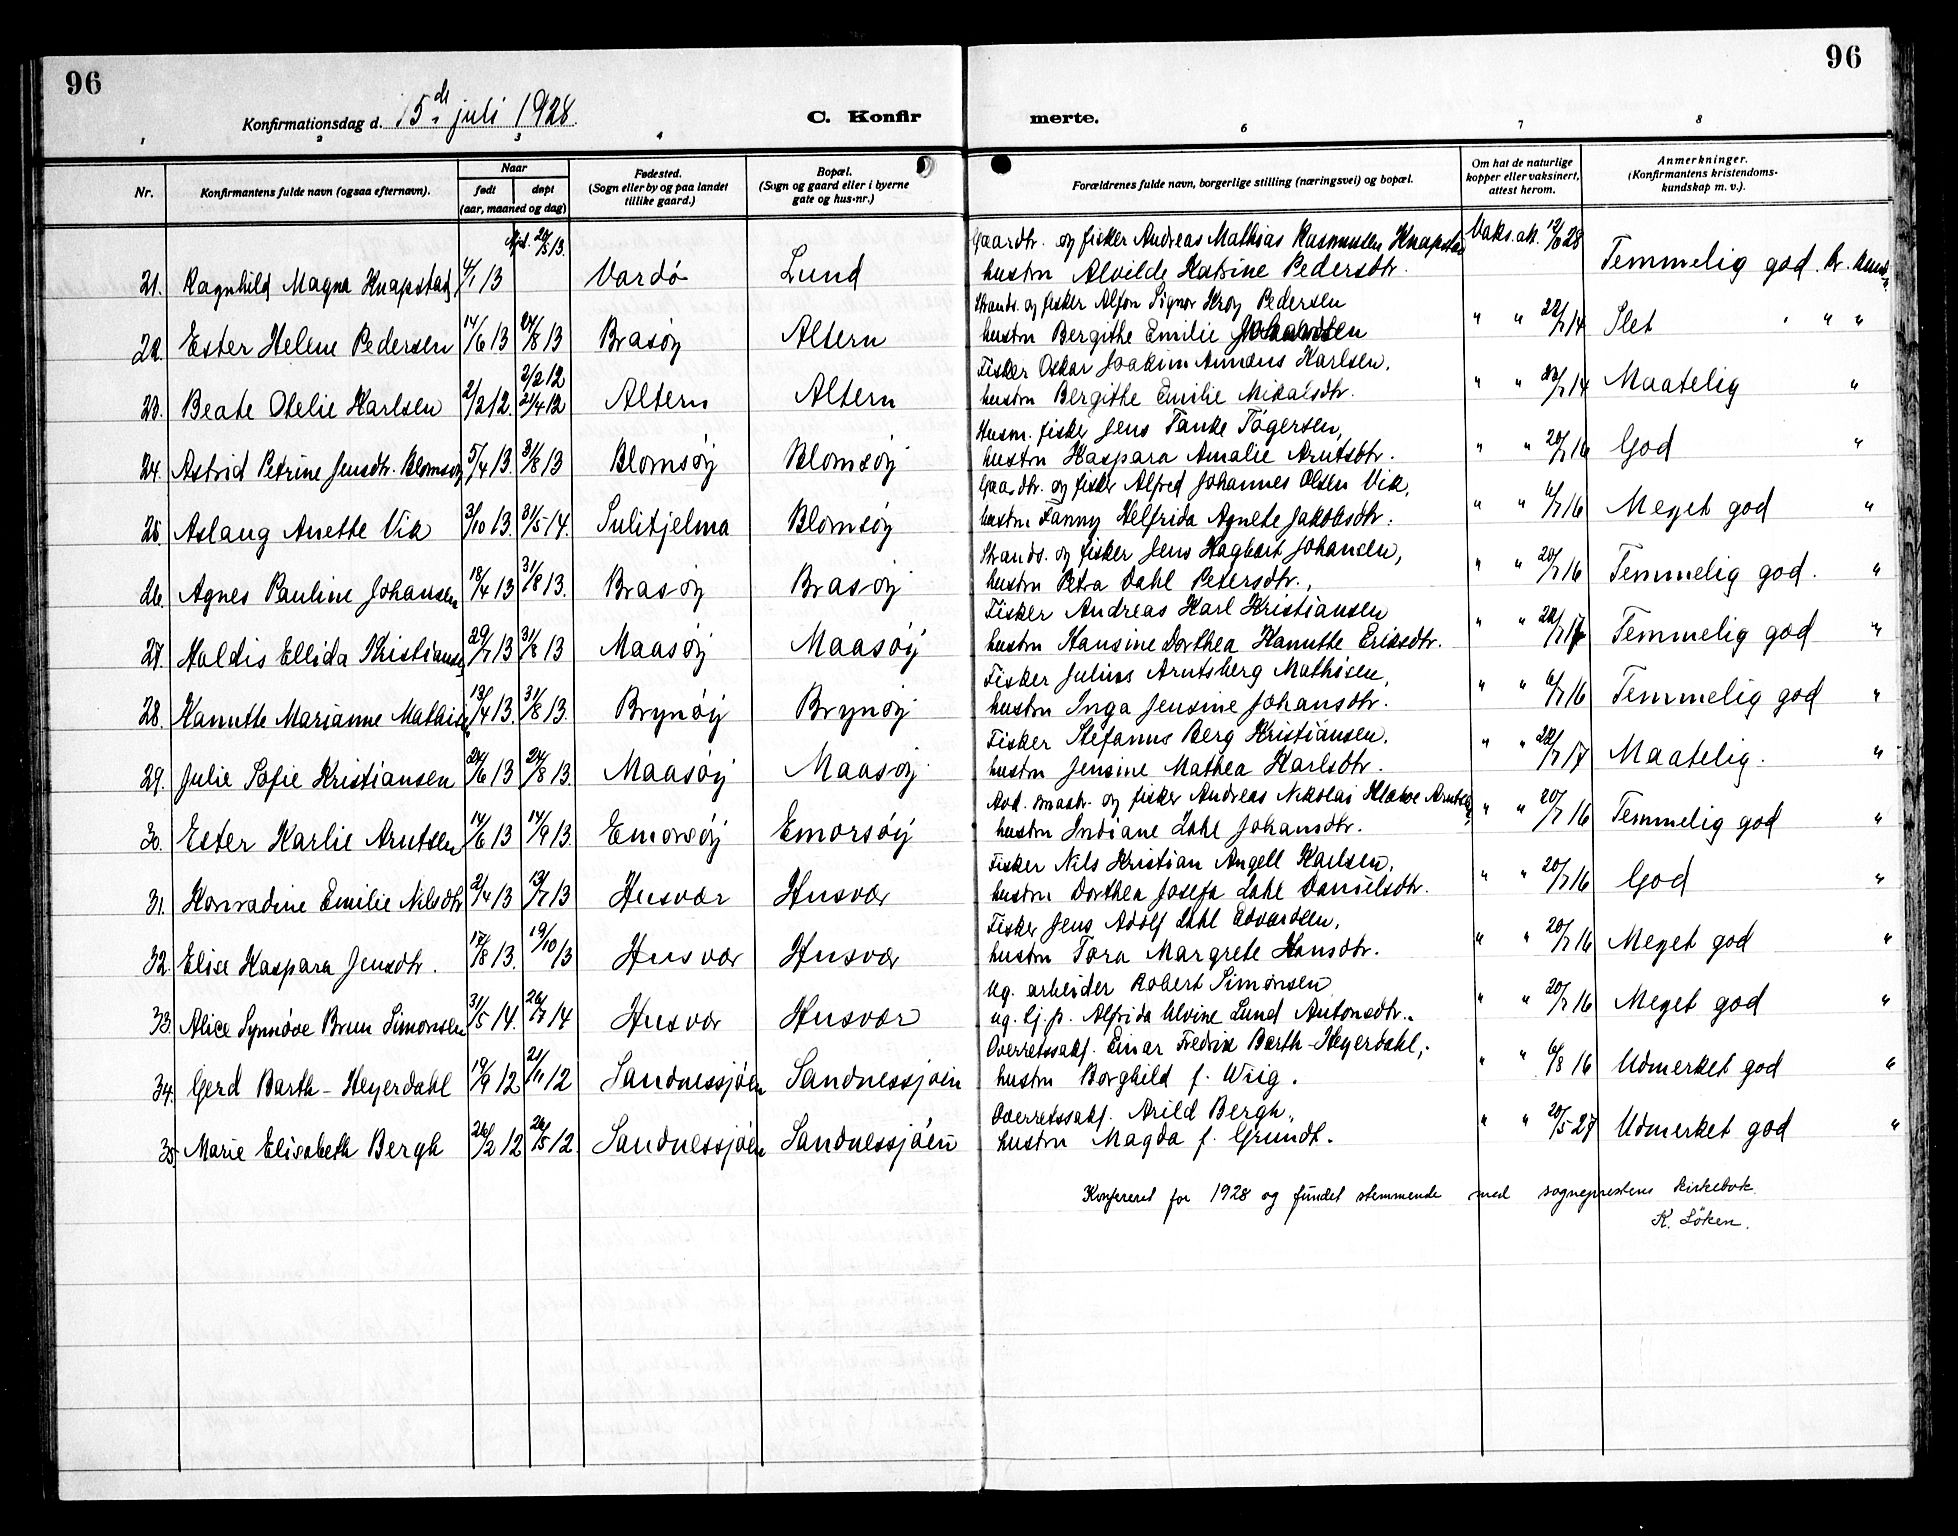 96
96
Konfirmationsdag d. 15de juli 1928.
C. Konfir
merte.
1 2 3 4 6 7 8
Nr.
Konfirmantens fulde navn (ogsaa efternavn).
Naar
født
døpt
(aar, maaned og dag)
Fødested.
(Sogn eller by og paa landet
tillike gaard.)
Bopæl.
(Sogn og gaard eller i byerne
gate og hus-nr.)
Forældrenes fulde navn, borgerlige stilling (næringsvei) og bopæl.
Om hat de naturlige
kopper eller vaksinert,
attest herom.
Anmerkninger.
(Konfirmantens kristendoms-
kundskap m. v.).
Gaardbr. og fisker Andreas Mathias Rasmussen Knapstad Vaks. att. 12/6 28
21. Ragnhild Magna Knapstad 4/1 13 20/5 13. Vardö Lund hustru Alvilde Katrine Pedersdtr. Temmelig god. Kr. kunds.
Strands. og fisker Alfon Signor Krog Pedersen
22. Ester Helene Pedersen 14/6 13 24/8 13 Brasöy Altern hustru Bergithe Emilie Johansen " " 22/7 14 Slet " "
Fisker Oskar Joakim Amandus Karlsen,
23. Beate Otelie Karlsen 2/2 12. 2/2 12 21/4 12 Altern Altern hustru Bergithe Emilie Mikalsdtr. " " 22/7 14 Maatelig "
Husm. fisker Jens Tanke Tögersen,
24. Astrid Petrine Jensdtr. Blomsöy 5/4 13. 31/8 13 Blomsöy Blomsöy hustru Kaspara Amalie Arntsdtr. " " 20/7 16 God "
Gaardbr. og fisker Alfred Johannes Olsen Vik,
25. Aslaug Anette Vik 3/10 13. 31/5 14. Sulitjelma Blomsöy hustru Fanny Helfrida Agnete Jakobsdtr. " " 6/7 16 Meget god "
Strands. og fisker Jens Hagbart Johansen,
26. Agnes Pauline Johansen 18/4 13 31/8 13. Brasöy Brasöy hustru Petra Dahl Petersdtr., " " 20/7 16 Temmelig god. "
Fisker Andreas Karl Kristiansen
27. Haldis Ellida Kristiansen 29/7 13 31/8 13 Maasöy Maasöy hustru Hansine Dorthea Hanutte Eriksdtr. " " Temmelig god "
Fisker Julius Arntsberg Mathisen,
28. Hanutte Marianne Mathisen 13/4 13. 31/8 13. Brynöy Brynöy hustru Inga Jensine Johansdtr. " " 6/7 16 Temmelig god "
Fisker Stefanus Berg Kristiansen.
29. Julie Sofie Kristiansen 24/6 13 24/8 13. Maasöy Maasöy. hustru Jensine Mathea Karlsdtr. " " 22/7 17 Maatelig. "
og fisker Andreas Nikolai Arntsen,
30. Ester Karlie Arntsen 14/6 13 14/9 13. Emorsöy Emorsöy hustru Indiane Lahl Johansdtr. " " 20/7 16 Temmelig god "
Fisker Nils Kristian Angell Karlsen,
31. Konradine Emilie Nilsdtr. 2/4 13 13/7 13 Husvær Husvær hustru Dorthea Josefa Lahl Danielsdtr. " " 20/7 16 God "
Fisker Jens Adolf Lahl Edvardsen,
32. Elise Kaspara Jensdtr. 17/8 13. 19/10 13 Husvær Husvær hustru Tora Margrete Hansdtr. " " 20/7 16 Meget god "
Ug. arbeider Robert Simonsen
33. Alice Synnöve Brun Simonsen 31/5 14. 26/7 14 Husvær Husvær ug. tj. p. Alfrida Alvine Lund Antonsdtr. " " 20/7 16 Meget god "
Overretssakf. Einar Fredrik Barth-Heyerdahl,
34. Gerd Barth-Heyerdahl 19/9 12 21/11 12 Sandnessjöen Sandnessjöen hustru Borghild f. Wiig. " " 6/8 16 Udmerket god "
Overretssakf. Arild Bergh,
35. Marie Elisabeth Bergh 26/2 12 26/5 12 Sandnessjöen Sandnessjöen hustru Magda f. Grundt. " " 20/5 27 Udmerket god "
Konfereret for 1928 og fundet stemmende med sogneprestens kirkebok.
K. Löken.